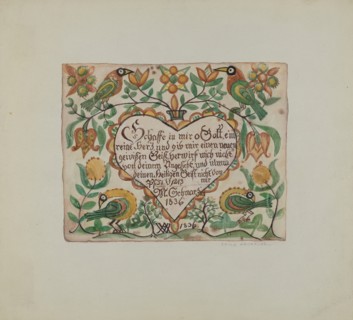 Schaffe in mir o Gott, ein
reines Herz, und gib mir einen neuen
gewissen Geist, verwirf mich nicht
von deinem Angesicht, und nimm
deinen heiligen Geist nicht von
mir
1836
1836